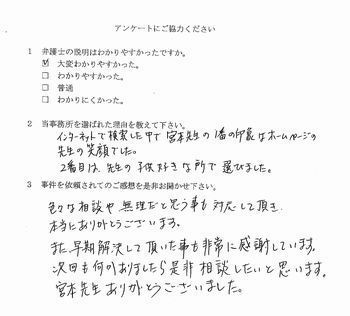 アンケートにご協力ください
1 弁護士の説明はわかりやすかったですか。
☑ 大変わかりやすかった。
□ わかりやすかった。
□ 普通
□ わかりにくかった。
2 当事務所を選ばれた理由を教えて下さい。
インターネットで検索した中で宮本先生の1番の印象はホームページの
先生の笑顔でした。
2番目は、先生の子供好きな所で選びました。
3 事件を依頼されてのご感想を是非お聞かせ下さい。
色々な相談や無理だと思う事も対応して頂き、
本当にありがとうございます。
また、早期解決して頂いた事も非常に感謝しています。
次回も何かありましたら是非相談したいと思います。
宮本先生ありがとうございました。